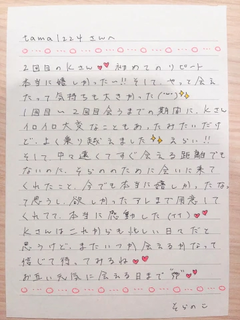 tama1224さんへ
2回目のKさん 初めてのリピート
本当に嬉しかったー!! そして、やっと会え
たって気持ちも大きかった(´꒳`)
1回目〜2回目会うまでの期間に、Kさん
イロイロ大変なこともあったみたいだけ
ど、よく乗り越えました えらい!!
そして中々遠くてすぐ会える距離でも
ないのに、そらのこのために会いに来て
くれたこと、今でも本当に嬉しかったな
って思うし、欲しかったアレまで用意して
くれてて、本当に感動した(TT)
Kさんはこれからも忙しい日々だと
思うけど、またいつか会えるかなって
信じて待ってみるね
お互い元気に会える日まで
そらのこ